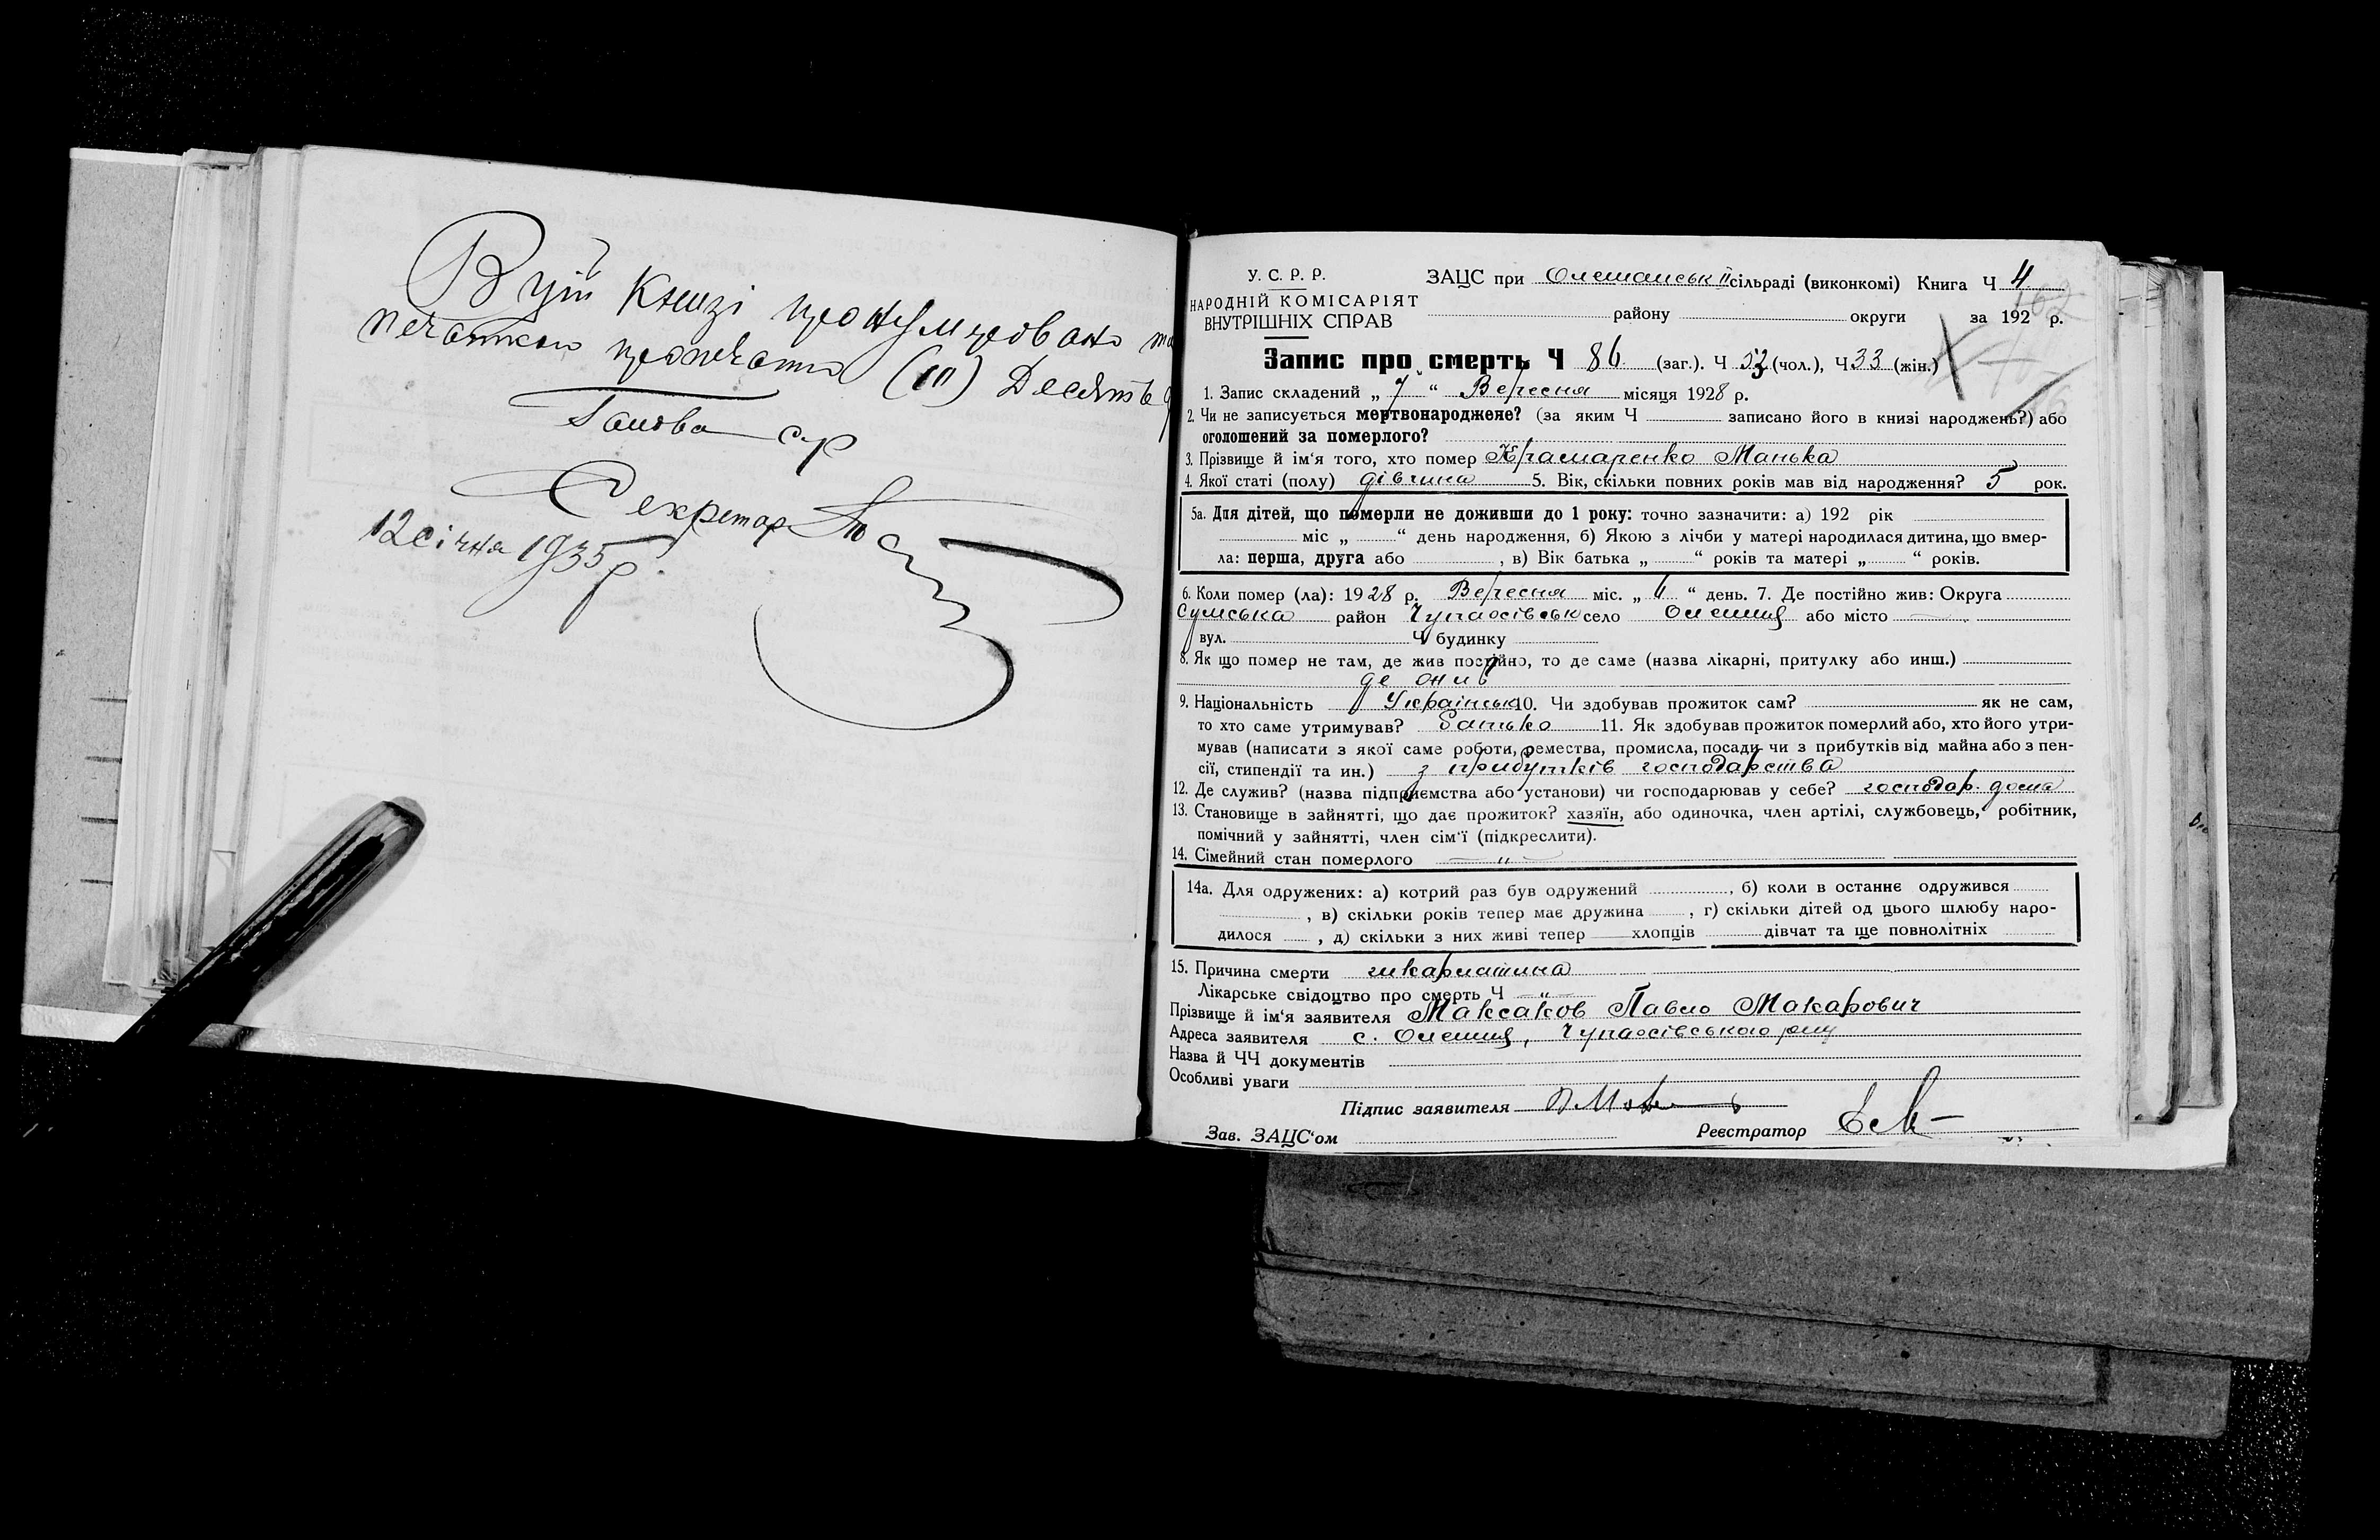 В цій Книзі пронумеровано та
печаткою пропечатано (10) Десять
Голова с/р
Секретар
12 січня 1935 р.
У. С. Р. Р.
НАРОДНІЙ КОМІСАРІЯТ
ВНУТРІШНІХ СПРАВ
ЗАЦС при Олешанськ ій сільраді (виконкомі) Книга Ч 4
району округи за 192 р.
Запис про смерть Ч 86 (заг.). Ч 53 (чол.), Ч 33 (жін.)
1. Запис складений „ 7 “ Вересня місяця 1928 р.
2. Чи не записується мертвонароджене? (за яким Ч записано його в книзі народжень?) або
оголошений за померлого?
3. Прізвище й ім‘я того, хто помер Крамаренко Манька
4. Якої статі (полу) дівчина 5. Вік, скільки повних років мав від народження? 5 рок.
5а. Для дітей, що померли не доживши до 1 року: точно зазначити: а) 192 рік
міс „ “ день народження, б) Якою з лічби у матері народилася дитина, що вмер-
ла: перша, друга або , в) Вік батька „ “ років та матері „ “ років.
6. Коли помер (ла): 1928 р. Вересня міс. „ 6 “ день. 7. Де постійно жив: Округа
Сумська район Чупахівськ село Олешня або місто
вул. Ч будинку
8. Як що помер не там, де жив постійно, то де саме (назва лікарні, притулку або инш.)
де жив
9. Національність Українськ 10. Чи здобував прожиток сам? як не сам,
то хто саме утримував? батько 11. Як здобував прожиток померлий або, хто його утри-
мував (написати з якої саме роботи, ремества, промисла, посади чи з прибутків від майна або з пен-
сії, стипендії та ин.) з прибутків господарства
12. Де служив? (назва підприємства або установи) чи господарював у себе? господар. дома
13. Становище в зайнятті, що дає прожиток? хазяїн, або одиночка, член артілі, службовець, робітник,
помічний у зайнятті, член сім‘ї (підкреслити).
14. Сімейний стан померлого — „ —
14а. Для одружених: а) котрий раз був одружений , б) коли в останнє одружився
, в) скільки років тепер має дружина , г) скільки дітей од цього шлюбу наро-
дилося , д) скільки з них живі тепер хлопців дівчат та ще повнолітніх
15. Причина смерти шкарлатина
Лікарське свідоцтво про смерть Ч — „ —
Прізвище й ім‘я заявителя Максаков Павло Макарович
Адреса заявителя с. Олешня, Чупахівського р-ну
Назва й ЧЧ документів
Особливі уваги
Підпис заявителя
Зав. ЗАЦС‘ом Реєстратор